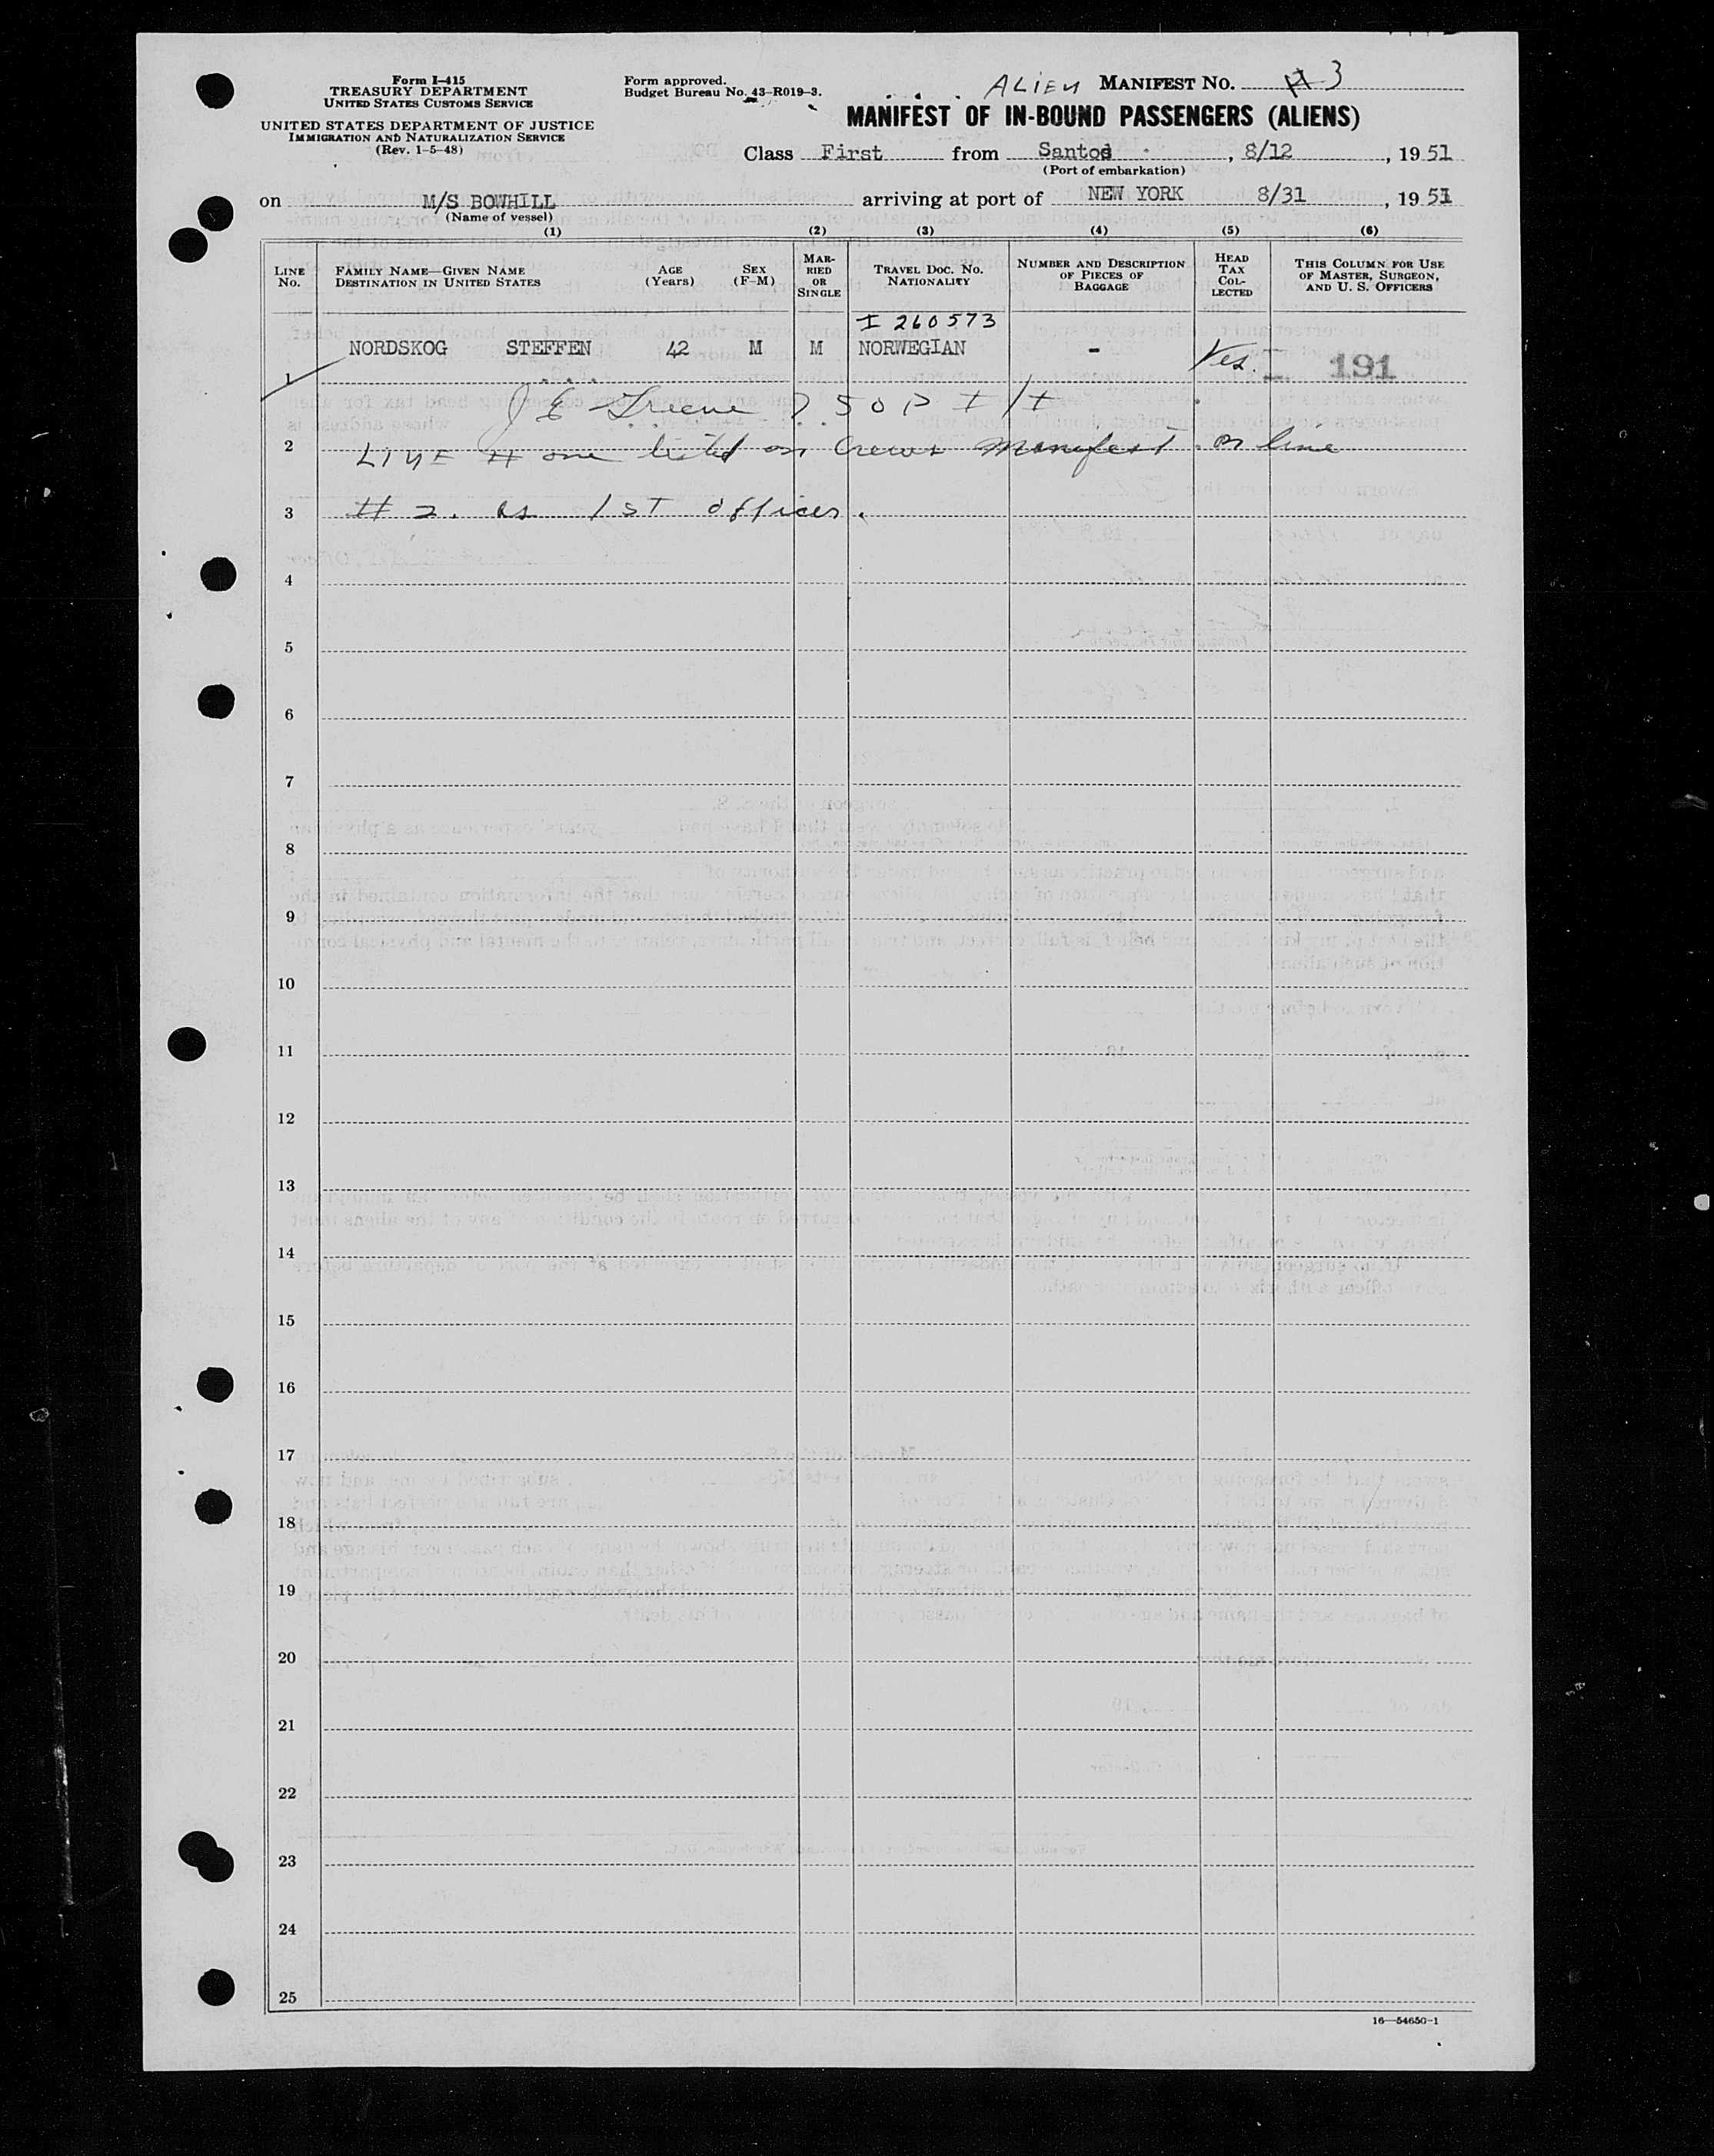 Form I-415
TREASURY DEPARTMENT
UNITED STATES CUSTOMS SERVICE
UNITED STATES DEPARTMENT OF JUSTICE
IMMIGRATION AND NATURALIZATION SERVICE
(Rev. 1-5-48)
Form approved.
Budget Bureau No. 43-R019-3.
ALIEN MANIFEST NO. 3
MANIFEST OF IN-BOUND PASSENGERS (ALIENS)
Class First from Santos, 8/12, 1951
(Port of embarkation)
on M/S BOWHILL arriving at port of NEW YORK 8/31, 1951
(Name of vessel)
(1) (2) (3) (4) (5) (6)
LINE No.
FAMILY NAME—GIVEN NAME
DESTINATION IN UNITED STATES
AGE (Years)
SEX (F-M)
MARRIED OR SINGLE
TRAVEL DOC. NO.
NATIONALITY
NUMBER AND DESCRIPTION OF PIECES OF BAGGAGE
HEAD TAX COLLECTED
THIS COLUMN FOR USE OF MASTER, SURGEON, AND U. S. OFFICERS
I 260573
NORDSKOG STEFFEN 42 M M NORWEGIAN - Yes. 191
1
J E Greene
2 LINE # one listed on Crews Manifest on line
3 # 2. as 1ST officer.
4
5
6
7
8
9
10
11
12
13
14
15
16
17
18
19
20
21
22
23
24
25
16—54650-1